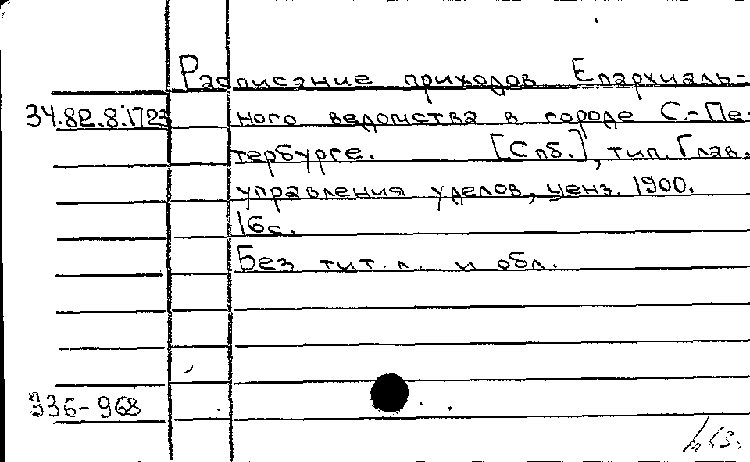 Расписание приходов Епархиаль-
34.82.8.1723 ного ведомства в городе С.-Пе-
тербурге. [Спб.], тип. Глав.
управления уделов, ценз. 1900.
16с.
Без тит. л. и обл.
336-968